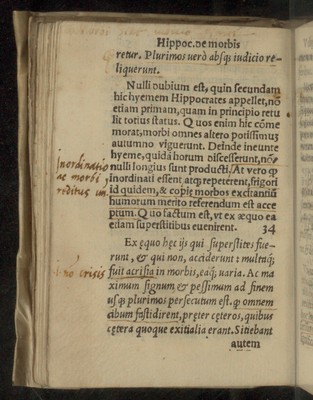 Hippoc. de morbis
retur. Plurimos uerò absq; iudicio re-
liquerunt.
Nulli dubium est, quin secundam
hic hyemem Hippocrates appellet, nõ
etiam primam, quam in principio retu
lit totius status. Quos enim hic cõme
morat, morbi omnes altero potissimùm
autumno viguerunt. Deinde ineunte
hyeme, quidã horum discesserunt, nõ
nulli longius sunt producti. At vero q
inordinati essent atq; repeterent, frigori
id quidem, & copiẹ morbos excitantiũ
humorum merito referendum est acce
ptum. Quo factum est, vt ex æquo ea
etiam superstitibus euenirent.
34
Ex ęquo hęc ijs qui superstites fue-
runt, & qui non, acciderunt: multaq;
fuit acrisia in morbis, eaq; uaria. Ac ma
ximum signum & pessimum ad finem
usq; plurimos persecutum est. q omnem
cibum fastidirent, pręter cęteros, quibus
cętera quoque exitialia erant. Sitiebant
autem
Inordinatio
ac morbi
reditus un
nò crisis